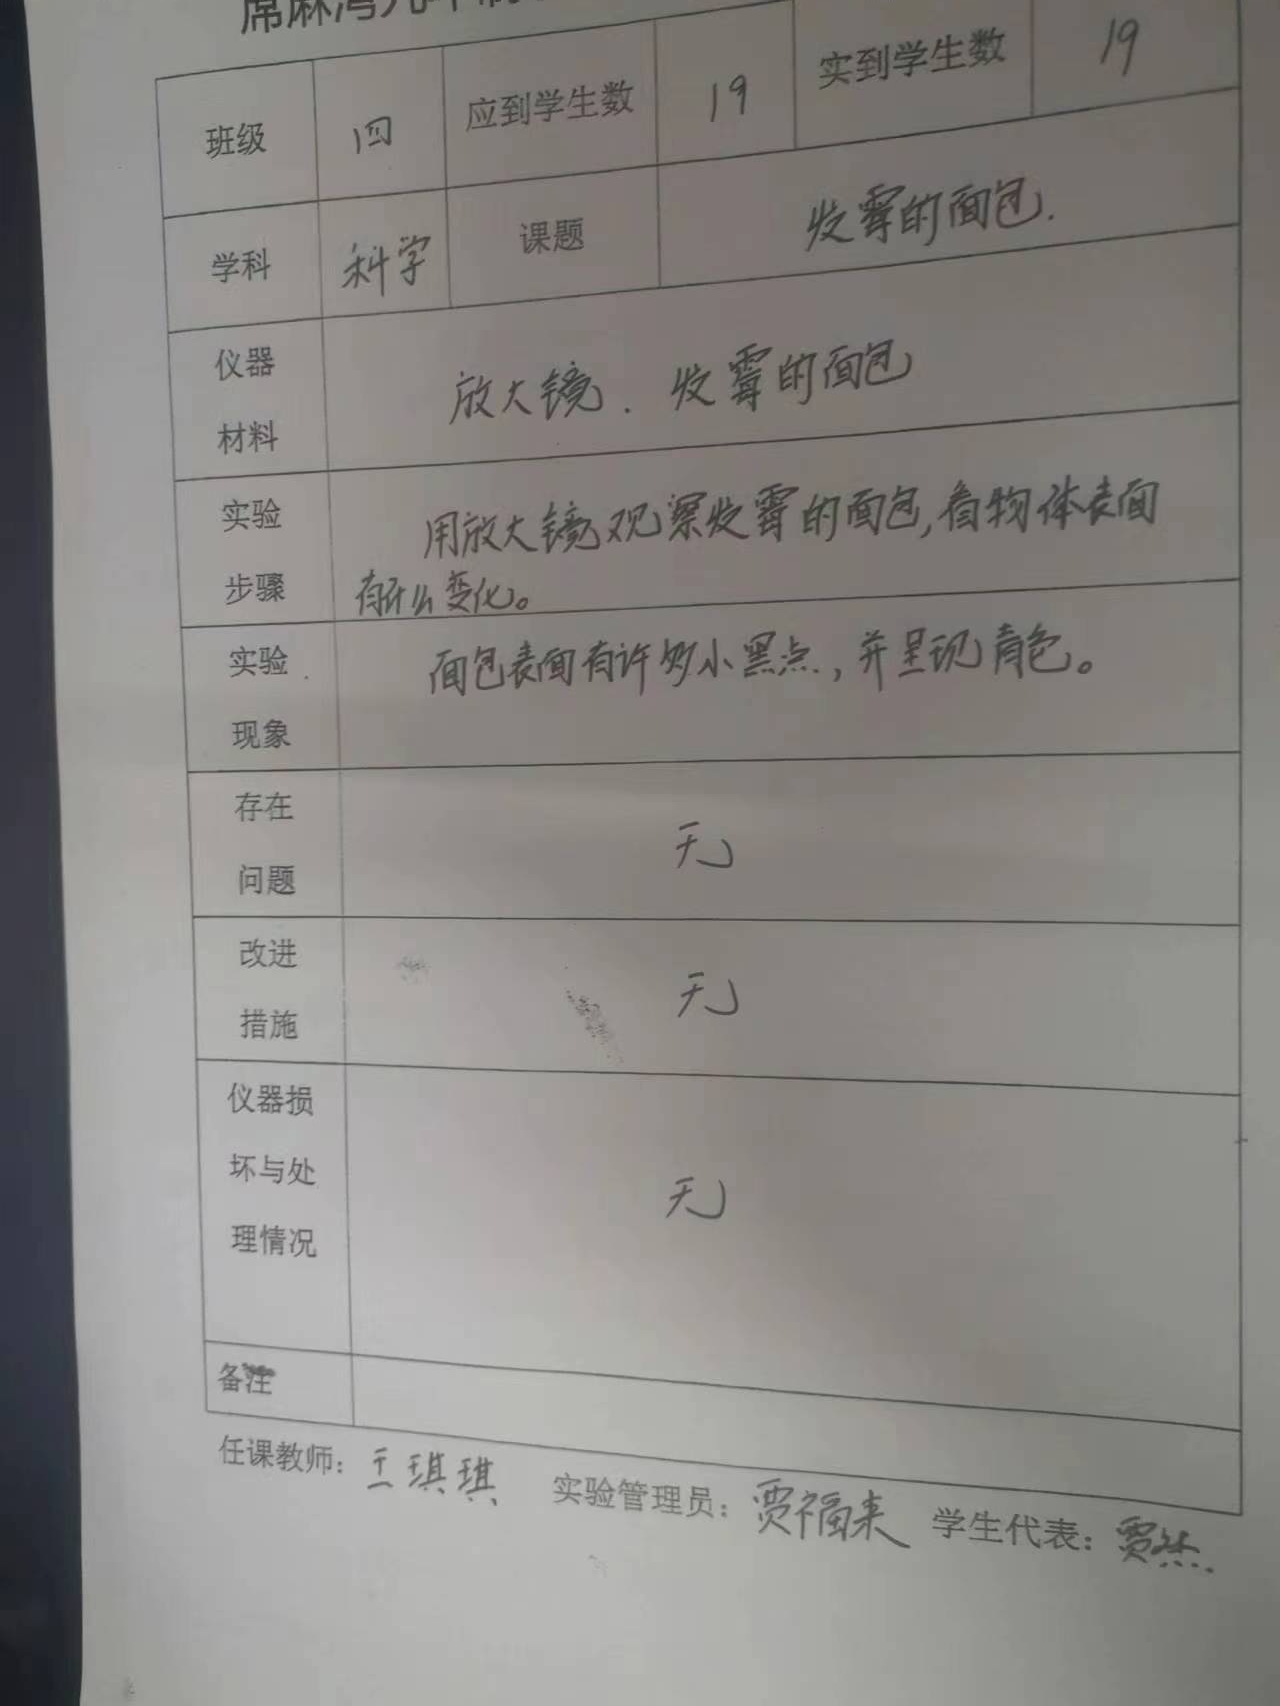 席麻湾九年制
班级 四 应到学生数 19 实到学生数 19
学科 科学 课题 发霉的面包.
仪器
材料
放大镜. 发霉的面包
实验
步骤
用放大镜观察发霉的面包,看物体表面
有什么变化。
实验
现象
面包表面有许多小黑点,并呈现青色。
存在
问题
无
改进
措施
无
仪器损
坏与处
理情况
无
备注
任课教师: 王琪琪 实验管理员: 贾福来 学生代表: 贾然.